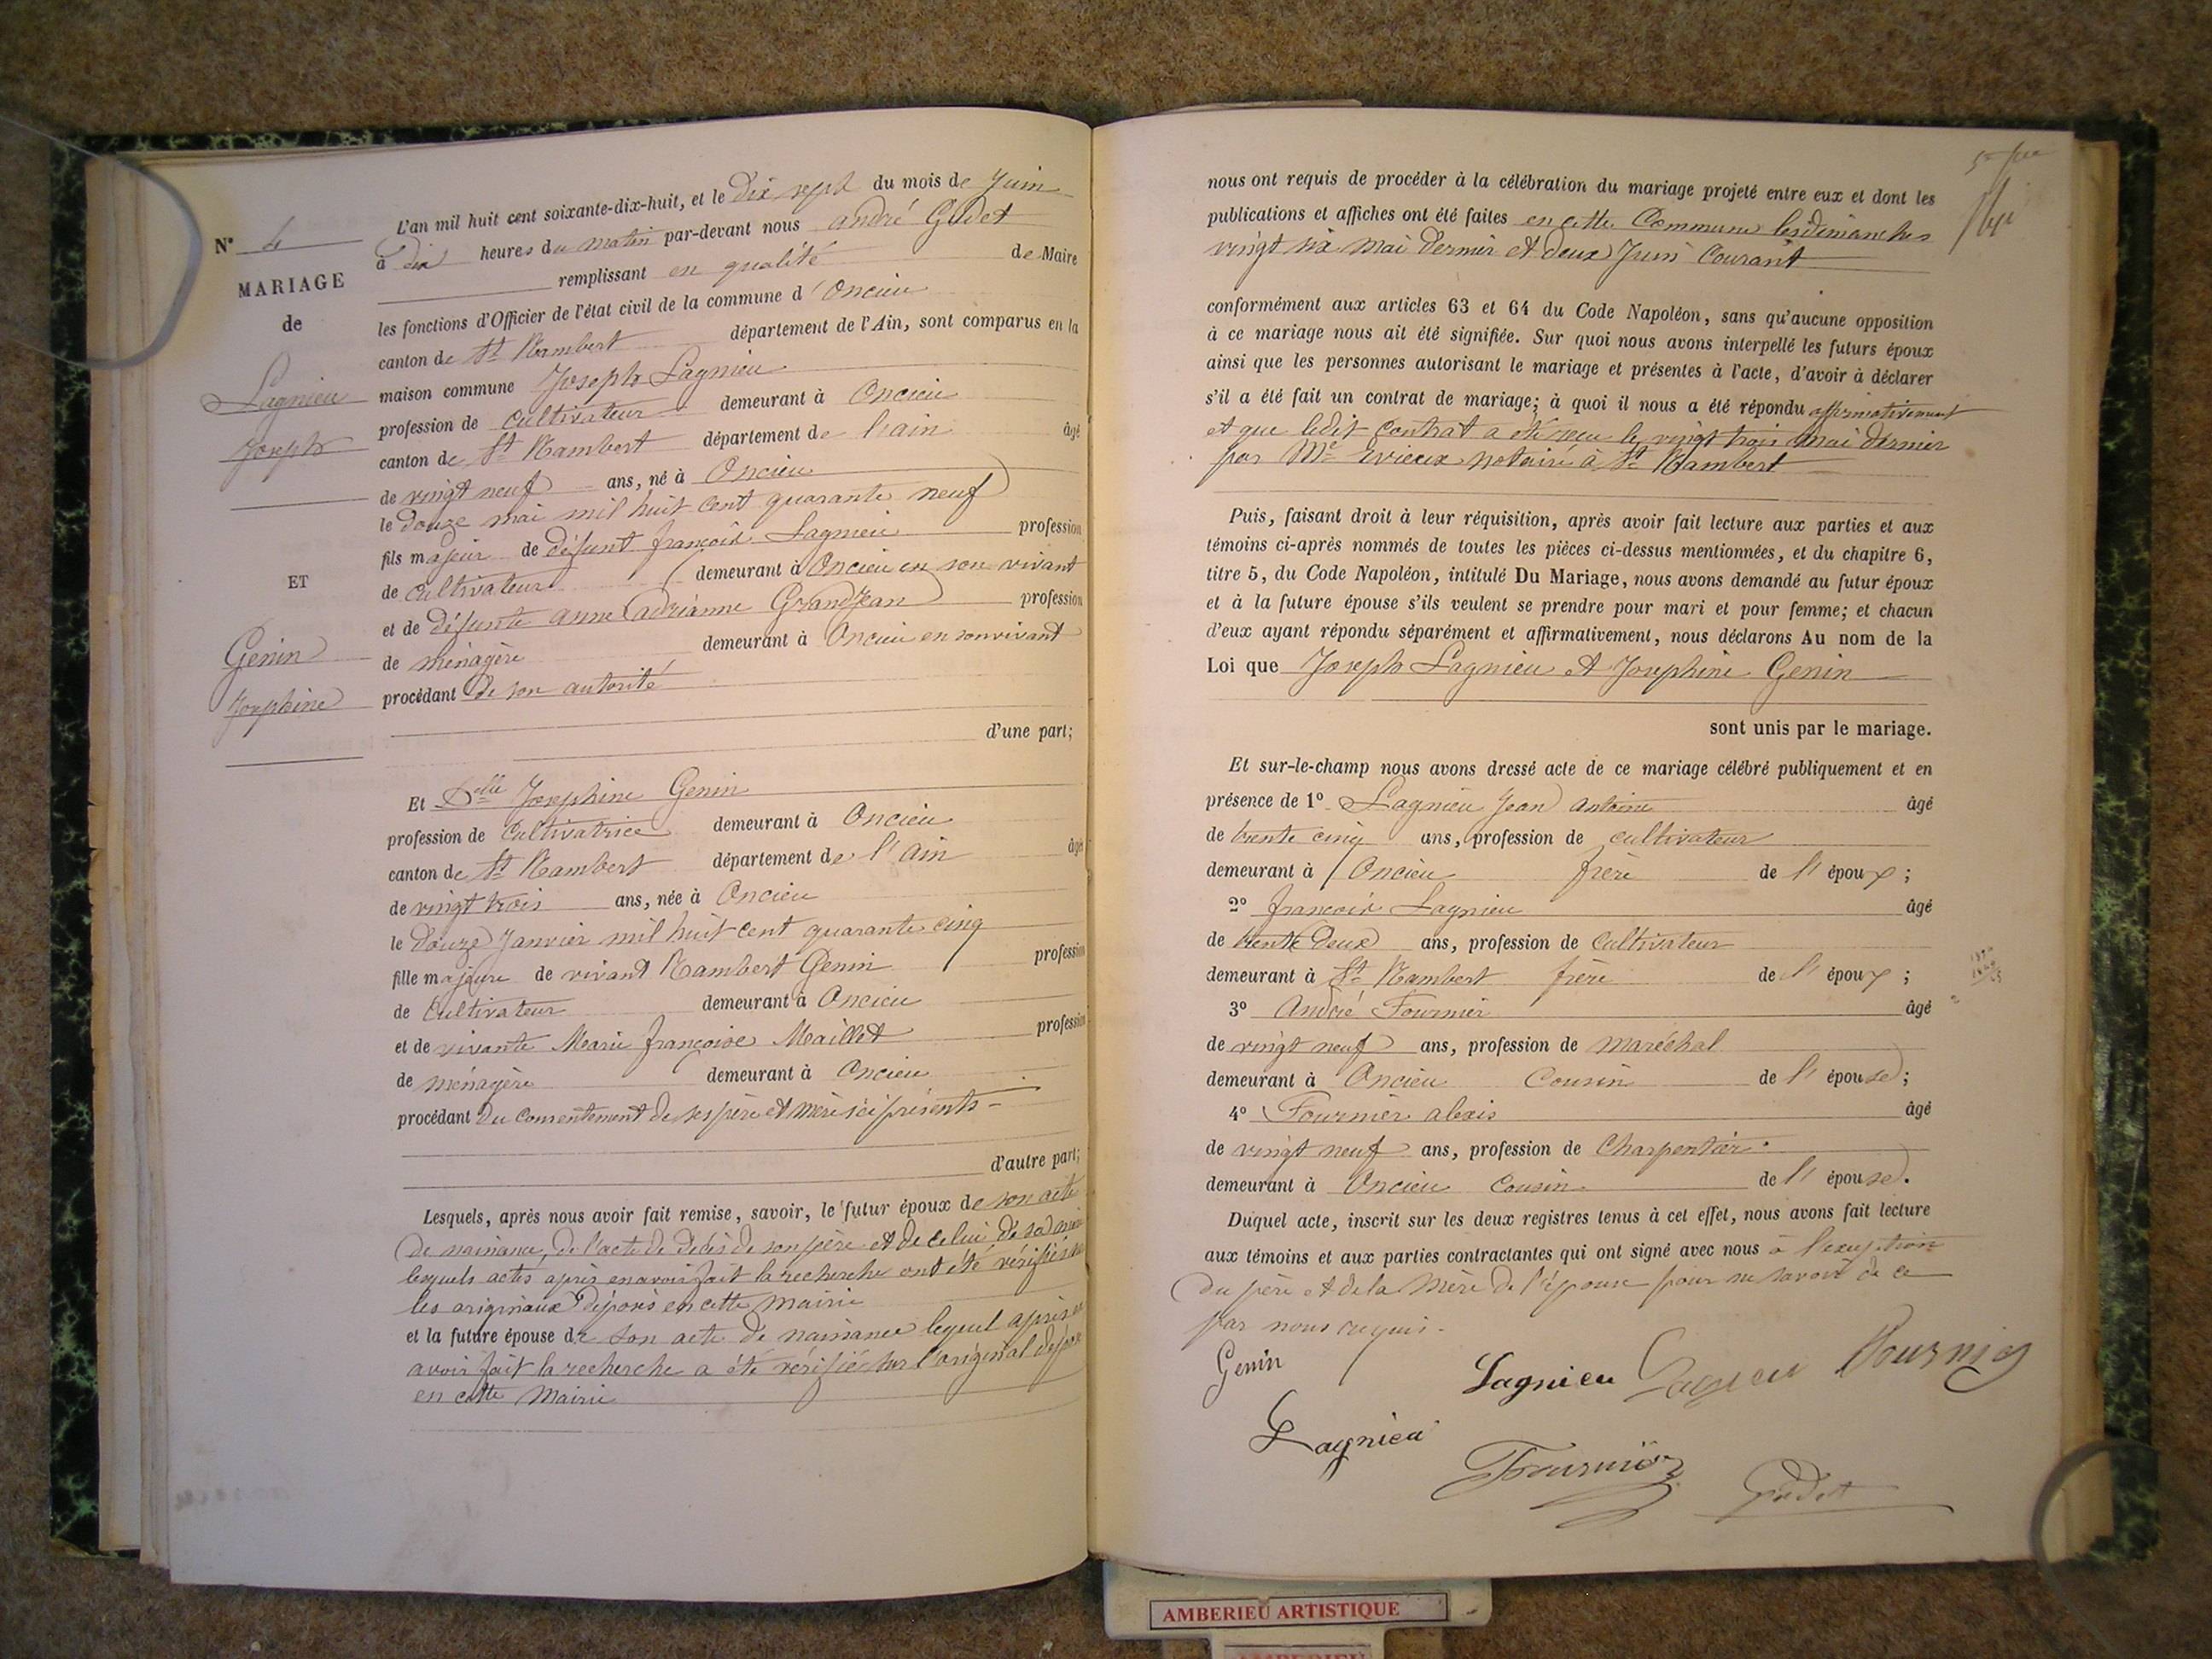 N° 4
MARIAGE
de
Lagnieu
Joseph
ET
Genin
Josephine
L'an mil huit cent soixante-dix-huit, et le dix sept du mois de Juin
à dix heures du matin par-devant nous andré Gudet
remplissant en qualité de Maire
les fonctions d'Officier de l'état civil de la commune d'Oncieu
canton de St Rambert département de l'Ain, sont comparus en la
maison commune Joseph Lagnieu
profession de cultivateur demeurant à Oncieu
canton de St Rambert département de l'ain âgé
de vingt neuf ans, né à Oncieu
le douze mai mil huit cent quarante neuf
fils majeur de défunt françois Lagnieu profession
de cultivateur demeurant à Oncieu en son vivant
et de défunte anne adrianne GrandJean profession
de ménagère demeurant à Oncieu en son vivant
procédant de son autorité
d'une part;
Et Delle Josephine Genin
profession de Cultivatrice demeurant à Oncieu
canton de St Rambert département de l'Ain âgé
de vingt trois ans, née à Oncieu
le douze Janvier mil huit cent quarante cinq
fille majeure de vivant Rambert Genin profession
de Cultivateur demeurant à Oncieu
et de vivante Marie françoise Maillet profession
de ménagère demeurant à Oncieu
procédant du consentement de ses père et mère ici présents
d'autre part;
Lesquels, après nous avoir fait remise, savoir, le futur époux de son acte
de naissance, de l'acte de décès de son père et de celui de sa mère
lesquels actes après en avoir fait la recherche ont été vérifiés
les originaux déposés en cette mairie
et la future épouse de son acte de naissance lequel après en
avoir fait la recherche a été vérifié sur l'original déposé
en cette Mairie
nous ont requis de procéder à la célébration du mariage projeté entre eux et dont les
publications et affiches ont été faites en cette Commune les dimanches
vingt six mai dernier et deux Juin Courant
conformément aux articles 63 et 64 du Code Napoléon, sans qu'aucune opposition
à ce mariage nous ait été signifiée. Sur quoi nous avons interpellé les futurs époux
ainsi que les personnes autorisant le mariage et présentes à l'acte, d'avoir à déclarer
s'il a été fait un contrat de mariage; à quoi il nous a été répondu affirmativement
et que ledit Contrat a été reçu le vingt trois Mai dernier
par Me notaire à St Rambert
Puis, faisant droit à leur réquisition, après avoir fait lecture aux parties et aux
témoins ci-après nommés de toutes les pièces ci-dessus mentionnées, et du chapitre 6,
titre 5, du Code Napoléon, intitulé Du Mariage, nous avons demandé au futur époux
et à la future épouse s'ils veulent se prendre pour mari et pour femme; et chacun
d'eux ayant répondu séparément et affirmativement, nous déclarons Au nom de la
Loi que Joseph Lagnieu et Josephine Genin
sont unis par le mariage.
Et sur-le-champ nous avons dressé acte de ce mariage célébré publiquement et en
présence de 1° Lagnieu Jean Antoine âgé
de trente cinq ans, profession de cultivateur
demeurant à Oncieu frère de l'époux;
2° françois Lagnieu âgé
de trente deux ans, profession de Cultivateur
demeurant à St Rambert frère de l'époux;
3° André Fournier âgé
de vingt neuf ans, profession de maréchal
demeurant à Oncieu Cousin de l'épouse;
4° Fournier alexis âgé
de vingt neuf ans, profession de Charpentier
demeurant à Oncieu Cousin de l'épouse.
Duquel acte, inscrit sur les deux registres tenus à cet effet, nous avons fait lecture
aux témoins et aux parties contractantes qui ont signé avec nous à l'exception
du père et de la Mère de l'épouse pour ne savoir de ce
par nous requis.
Genin Lagnieu Lagnieu Fournier
Lagnieu Fournier Gudet
AMBERIEU ARTISTIQUE
AMBERIEU